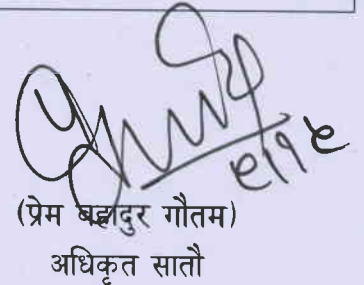 ९।१९
(प्रेम बहादुर गौतम)
अधिकृत सातौ